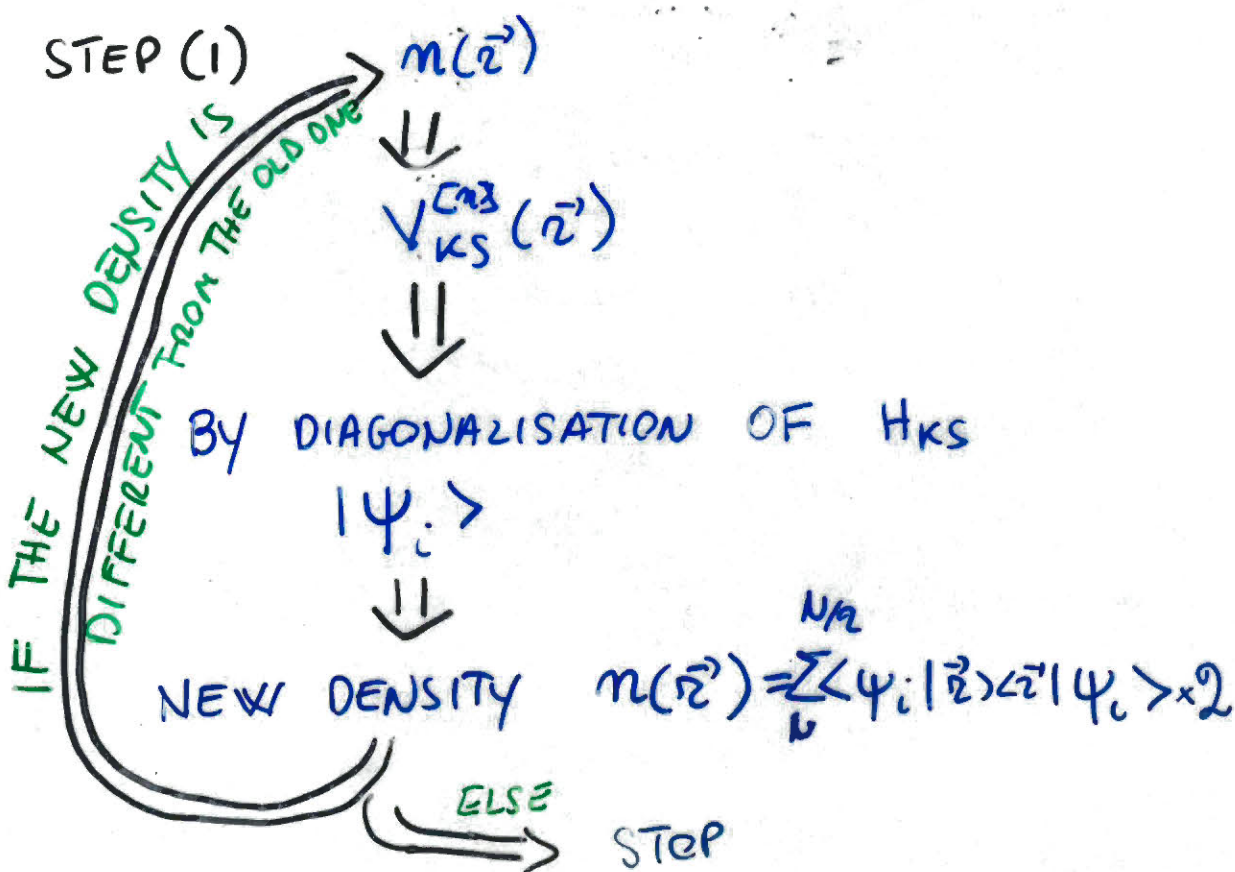 STEP (1)
n(r⃗)
V_KS^[n](r⃗)
BY DIAGONALISATION OF H_KS
|ψ_i >
NEW DENSITY n(r⃗) = Σ_N^{N/2} <ψ_i|r⃗><r⃗|ψ_i> ×2
IF THE NEW DENSITY IS
DIFFERENT FROM THE OLD ONE
ELSE
STOP